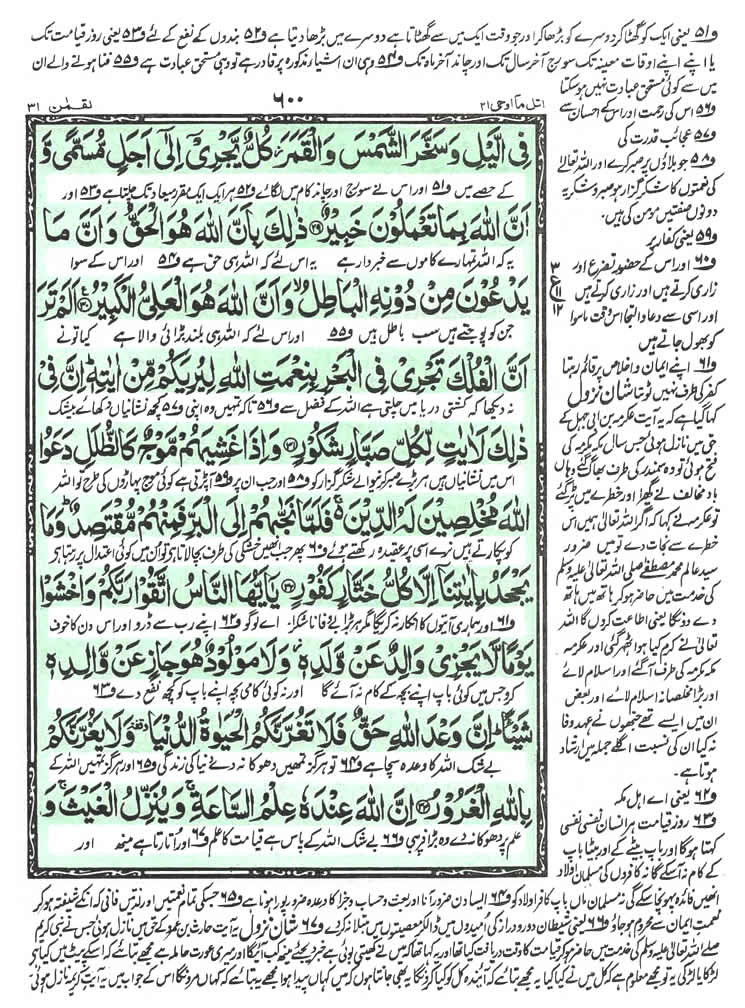 و۵۱ یعنی ایک کو گھٹا کر دوسرے کو بڑھا کر اور جو وقت ایک میں سے گھٹاتا ہے دوسرے میں بڑھا دیتا ہے و۵۲ بندوں کے نفع کے لئے و۵۳ یعنی روز قیامت تک
یا اپنے اپنے اوقات معینہ تک سورج آخر سال تک اور چاند آخر ماہ تک و۵۴ وہی ان اشیاء مذکورہ پر قادر ہے تو وہی مستحق عبادت ہے و۵۵ فنا ہونے والے ان
میں سے کوئی مستحق عبادت نہیں ہو سکتا
اتل ما اوحی ۲۱
۶۰۰
لقمٰن ۳۱
فِی الَّیْلِ وَسَخَّرَ الشَّمْسَ وَالْقَمَرَ کُلٌّ یَّجْرِیْۤ اِلٰۤی اَجَلٍ مُّسَمًّی وَّ
کے حصے میں و۵۱ اور اس نے سورج اور چاند کام میں لگائے و۵۲ ہر ایک ایک مقرر میعاد تک چلتا ہے و۵۳ اور
اَنَّ اللّٰهَ بِمَا تَعْمَلُوْنَ خَبِیْرٌ ۲۹ ذٰلِکَ بِاَنَّ اللّٰهَ هُوَ الْحَقُّ وَاَنَّ مَا
یہ کہ اللہ تمہارے کاموں سے خبردار ہے یہ اس لئے کہ اللہ ہی حق ہے و۵۴ اور اس کے سوا
یَدْعُوْنَ مِنْ دُوْنِهِ الْبَاطِلُ وَاَنَّ اللّٰهَ هُوَ الْعَلِیُّ الْکَبِیْرُ ۳۰ اَلَمْ تَرَ
جن کو پوجتے ہیں سب باطل ہیں و۵۵ اور اس لئے کہ اللہ ہی بلند بڑائی والا ہے کیا تو نے
اَنَّ الْفُلْکَ تَجْرِیْ فِی الْبَحْرِ بِنِعْمَتِ اللّٰهِ لِیُرِیَکُمْ مِّنْ اٰیٰتِهٖ اِنَّ فِیْ
نہ دیکھا کہ کشتی دریا میں چلتی ہے اللہ کے فضل سے و۵۶ تاکہ تمہیں وہ اپنی و۵۷ کچھ نشانیاں دکھائے بیشک
ذٰلِکَ لَاٰیٰتٍ لِّکُلِّ صَبَّارٍ شَکُوْرٍ ۳۱ وَاِذَا غَشِیَهُمْ مَّوْجٌ کَالظُّلَلِ دَعَوُا
اس میں نشانیاں ہیں ہر بڑے صبر کرنے والے شکر گزار کو و۵۸ اور جب ان پر و۵۹ آ پڑتی ہے کوئی موج پہاڑوں کی طرح تو اللہ
اللّٰهَ مُخْلِصِیْنَ لَهُ الدِّیْنَ فَلَمَّا نَجّٰهُمْ اِلَی الْبَرِّ فَمِنْهُمْ مُّقْتَصِدٌ وَمَا
کو پکارتے ہیں نرے اسی پر عقیدہ رکھتے ہوئے و۶۰ پھر جب انھیں خشکی کی طرف بچا لاتا ہے تو ان میں کوئی اعتدال پر رہتا ہے
یَجْحَدُ بِاٰیٰتِنَاۤ اِلَّا کُلُّ خَتَّارٍ کَفُوْرٍ ۳۲ یٰۤاَیُّهَا النَّاسُ اتَّقُوْا رَبَّکُمْ وَاخْشَوْا
و۶۱ اور ہماری آیتوں کا انکار نہ کرے گا مگر ہر بڑا بے وفا ناشکرا اے لوگو و۶۲ اپنے رب سے ڈرو اور اس دن کا خوف
یَوْمًا لَّا یَجْزِیْ وَالِدٌ عَنْ وَّلَدِهٖ وَلَا مَوْلُوْدٌ هُوَ جَازٍ عَنْ وَّالِدِهٖ
کرو جس میں کوئی باپ اپنے بچہ کے کام نہ آئے گا اور نہ کوئی کامی بچہ اپنے باپ کو کچھ نفع دے و۶۳
شَیْـًٔا اِنَّ وَعْدَ اللّٰهِ حَقٌّ فَلَا تَغُرَّنَّکُمُ الْحَیٰوةُ الدُّنْیَا وَلَا یَغُرَّنَّکُمْ
بے شک اللہ کا وعدہ سچا ہے و۶۴ تو ہرگز تمھیں دھوکا نہ دے دنیا کی زندگی و۶۵ اور ہرگز تمہیں اللہ کے
بِاللّٰهِ الْغَرُوْرُ ۳۳ اِنَّ اللّٰهَ عِنْدَهٗ عِلْمُ السَّاعَةِ وَیُنَزِّلُ الْغَیْثَ وَ
علم پر دھوکا نہ دے وہ بڑا فریبی و۶۶ بے شک اللہ کے پاس ہے قیامت کا علم و۶۷ اور اتارتا ہے مینھ اور
۳
ع
۱۱
۱۲
و۵۶ اس کی رحمت اور اس کے احسان سے
و۵۷ عجائب قدرت کی
و۵۸ جو بلاؤں پر صبر کرے اور اللہ تعالیٰ
کی نعمتوں کا شکر گزار ہو صبر و شکر یہ
دونوں صفتیں مومن کی ہیں۔
و۵۹ یعنی کفار پر
و۶۰ اور اس کے حضور تضرع اور
زاری کرتے ہیں اور زاری کرتے ہیں
اور اسی سے دعا و التجا اس وقت ماسوا
کو بھول جاتے ہیں
و۶۱ اپنے ایمان و اخلاص پر قائم رہتا
کفر کی طرف نہیں لوٹتا شان نزول
کہا گیا ہے کہ یہ آیت عکرمہ بن ابی جہل کے
حق میں نازل ہوئی جس سال مکہ مکرمہ کی
فتح ہوئی تو وہ سمندر کی طرف بھاگ گئے وہاں
باد مخالف نے گھیرا اور خطرے میں پڑ گئے
تو عکرمہ نے کہا کہ اگر اللہ تعالیٰ ہمیں اس
خطرے سے نجات دے تو میں ضرور
سید عالم محمد مصطفےٰ صلی اللہ تعالیٰ علیہ وسلم
کی خدمت میں حاضر ہو کر ہاتھ میں ہاتھ
دے دونگا یعنی اطاعت کروں گا اللہ
تعالیٰ نے کرم کیا ہوا ٹھہر گئی اور عکرمہ
مکہ مکرمہ کی طرف آ گئے اور اسلام لائے
اور بڑا مخلصانہ اسلام لائے اور بعض
ان میں ایسے تھے جنھوں نے عہد وفا
نہ کیا ان کی نسبت اگلے جملہ میں ارشاد
ہوتا ہے۔
و۶۲ یعنی اے اہل مکہ
و۶۳ روز قیامت ہر انسان نفسی نفسی
کہتا ہو گا اور باپ بیٹے کے اور بیٹا باپ
کے کام نہ آ سکے گا نہ کافروں کی مسلمان اولاد
انھیں فائدہ پہونچا سکے گی نہ مسلمان ماں باپ کافر اولاد کو و۶۴ ایسا دن ضرور آنا اور بعث و حساب و جزا کا وعدہ ضرور پورا ہونا ہے و۶۵ جسکی تمام نعمتیں اور لذتیں فانی کہ انکے شیفتہ ہو کر
نعمت ایمان سے محروم ہو جاؤ و۶۶ یعنی شیطان دور و دراز کی امیدوں میں ڈال کر معصیتوں میں مبتلا نہ کر دے و۶۷ شان نزول یہ آیت حارث بن عمرو کے حق میں نازل ہوئی جس نے نبی کریم
صلے اللہ تعالیٰ علیہ وسلم کی خدمت میں حاضر ہو کر قیامت کا وقت دریافت کیا تھا اور یہ کہا تھا کہ میں نے کھیتی بوئی ہے خبر دیجئے مینھ کب آئیگا اور میری عورت حاملہ ہے مجھے بتائیے کہ اسکے پیٹ میں کیا ہے
لڑکا یا لڑکی یہ تو مجھے معلوم ہے کہ کل میں نے کیا کیا یہ مجھے بتائیے کہ آئندہ کل کو کیا کرونگا یہ بھی جانتا ہوں کہ میں کہاں پیدا ہوا مجھے یہ بتائیے کہ کہاں مرونگا اس کے جواب میں یہ آیت کریمہ نازل ہوئی